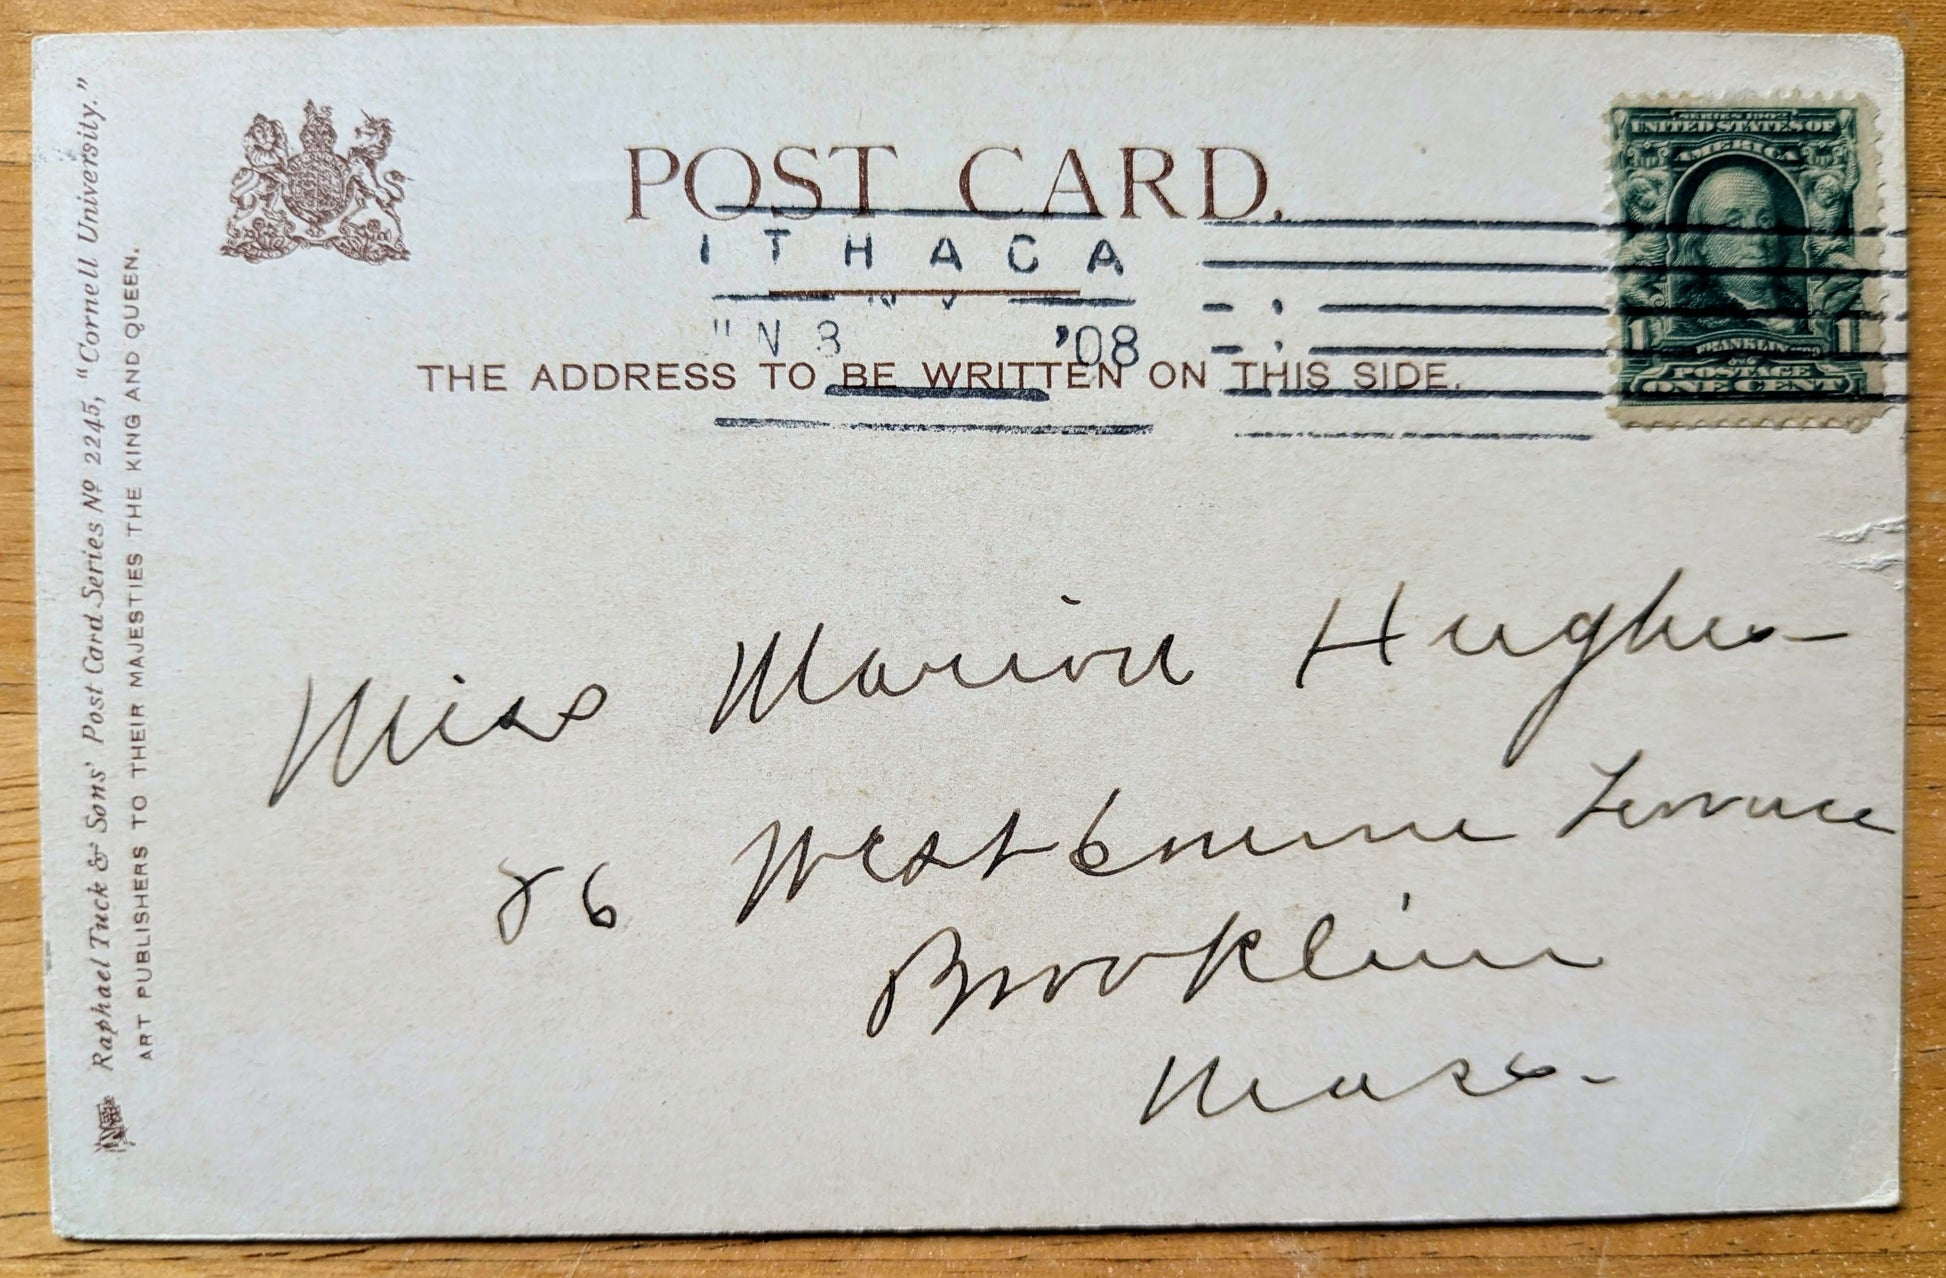 POST CARD.
ITHACA
N Y
N 3 '08
THE ADDRESS TO BE WRITTEN ON THIS SIDE.
SERIES 1902
UNITED STATES OF
AMERICA
1 FRANKLIN 1
POSTAGE
ONE CENT
Miss Marion Hughes
86 Westbourne Terrace
Brookline
Mass.
Raphael Tuck & Sons' Post Card Series No 2245, "Cornell University."
ART PUBLISHERS TO THEIR MAJESTIES THE KING AND QUEEN.